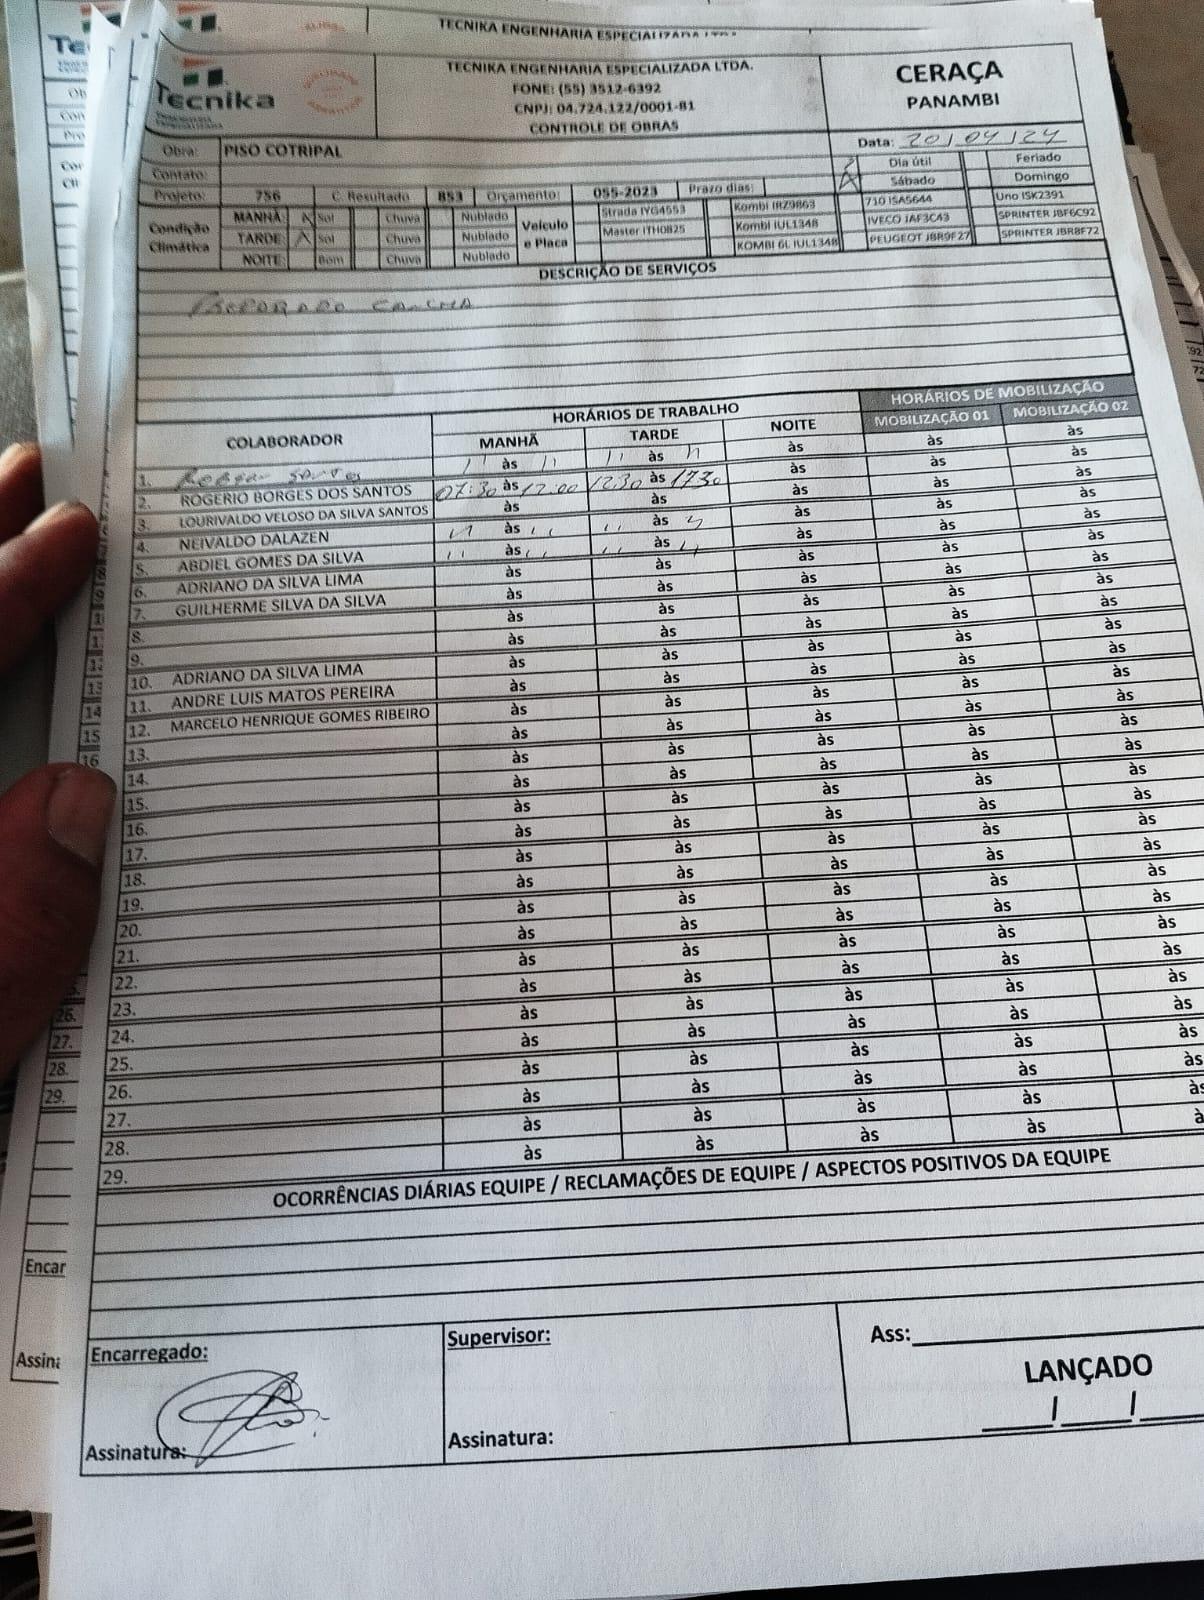 TECNIKA ENGENHARIA ESPECIALIZADA LTDA.
Tecnika
TECNIKA ENGENHARIA ESPECIALIZADA LTDA.
FONE: (55) 3512-6392
CNPJ: 04.724.122/0001-81
CONTROLE DE OBRAS
CERAÇA
PANAMBI
Data: 20/04/24
Obra: PISO COTRIPAL
Contato:
Dia útil Feriado
X Sábado Domingo
Projeto: 756 C. Resultado 853 Orçamento: 055-2023 Prazo dias:
Condição Climática
MANHÃ: X Sol Chuva Nublado
TARDE: X Sol Chuva Nublado
NOITE: Bom Chuva Nublado
Veículo e Placa
Strada IYG4553 Kombi IRZ9863 710 ISA5644 Uno ISK2391
Master ITH0825 Kombi IUL1348 IVECO JAF3C43 SPRINTER JBF6C92
KOMBI 6L IUL1348 PEUGEOT JBR9F27 SPRINTER JBR8F72
DESCRIÇÃO DE SERVIÇOS
CANCHA
COLABORADOR HORÁRIOS DE TRABALHO HORÁRIOS DE MOBILIZAÇÃO
MANHÃ TARDE NOITE MOBILIZAÇÃO 01 MOBILIZAÇÃO 02
1. " às " " às " às às às
2. ROGERIO BORGES DOS SANTOS 07:30 às 12:00 12:30 às 17:30 às às às
3. LOURIVALDO VELOSO DA SILVA SANTOS às às às às às
4. NEIVALDO DALAZEN " às " " às " às às às
5. ABDIEL GOMES DA SILVA " às " " às " às às às
6. ADRIANO DA SILVA LIMA às às às às às
7. GUILHERME SILVA DA SILVA às às às às às
8. às às às às às
9. às às às às às
10. ADRIANO DA SILVA LIMA às às às às às
11. ANDRE LUIS MATOS PEREIRA às às às às às
12. MARCELO HENRIQUE GOMES RIBEIRO às às às às às
13. às às às às às
14. às às às às às
15. às às às às às
16. às às às às às
17. às às às às às
18. às às às às às
19. às às às às às
20. às às às às às
21. às às às às às
22. às às às às às
23. às às às às às
24. às às às às às
25. às às às às às
26. às às às às às
27. às às às às às
28. às às às às às
29. às às às às
OCORRÊNCIAS DIÁRIAS EQUIPE / RECLAMAÇÕES DE EQUIPE / ASPECTOS POSITIVOS DA EQUIPE
Encarregado:
Assinatura:
Supervisor:
Assinatura:
Ass:
LANÇADO
___/___/___